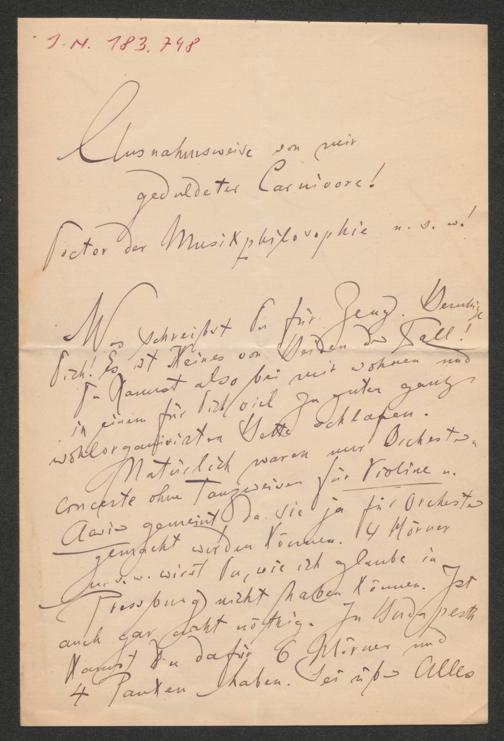 I.N. 183.748
Ausnahmsweise von mir
geduldeter Carnivore!
Doctor der Musikphilosophie u. s. w!
Was schreibst Du für Zeug. Beruhige
Dich! Es ist Keines von Beiden der Fall!
Du kannst also bei mir wohnen und
in einem für Dich viel zu guten ganz
wohlorganisirten Bette schlafen.
Natürlich waren nur Orchester-
concerte ohne Tanzweisen für Violine u.
gemeint, da sie ja für Orchester
gemacht werden können. 4 Hörner
u. s. w. wirst Du, wie ich glaube in
Pressburg nicht haben können. Ist
auch gar nicht nöthig. In Budapesth
kannst Du dafür 6 Hörner und
4 Pauken haben. Sei über Alles